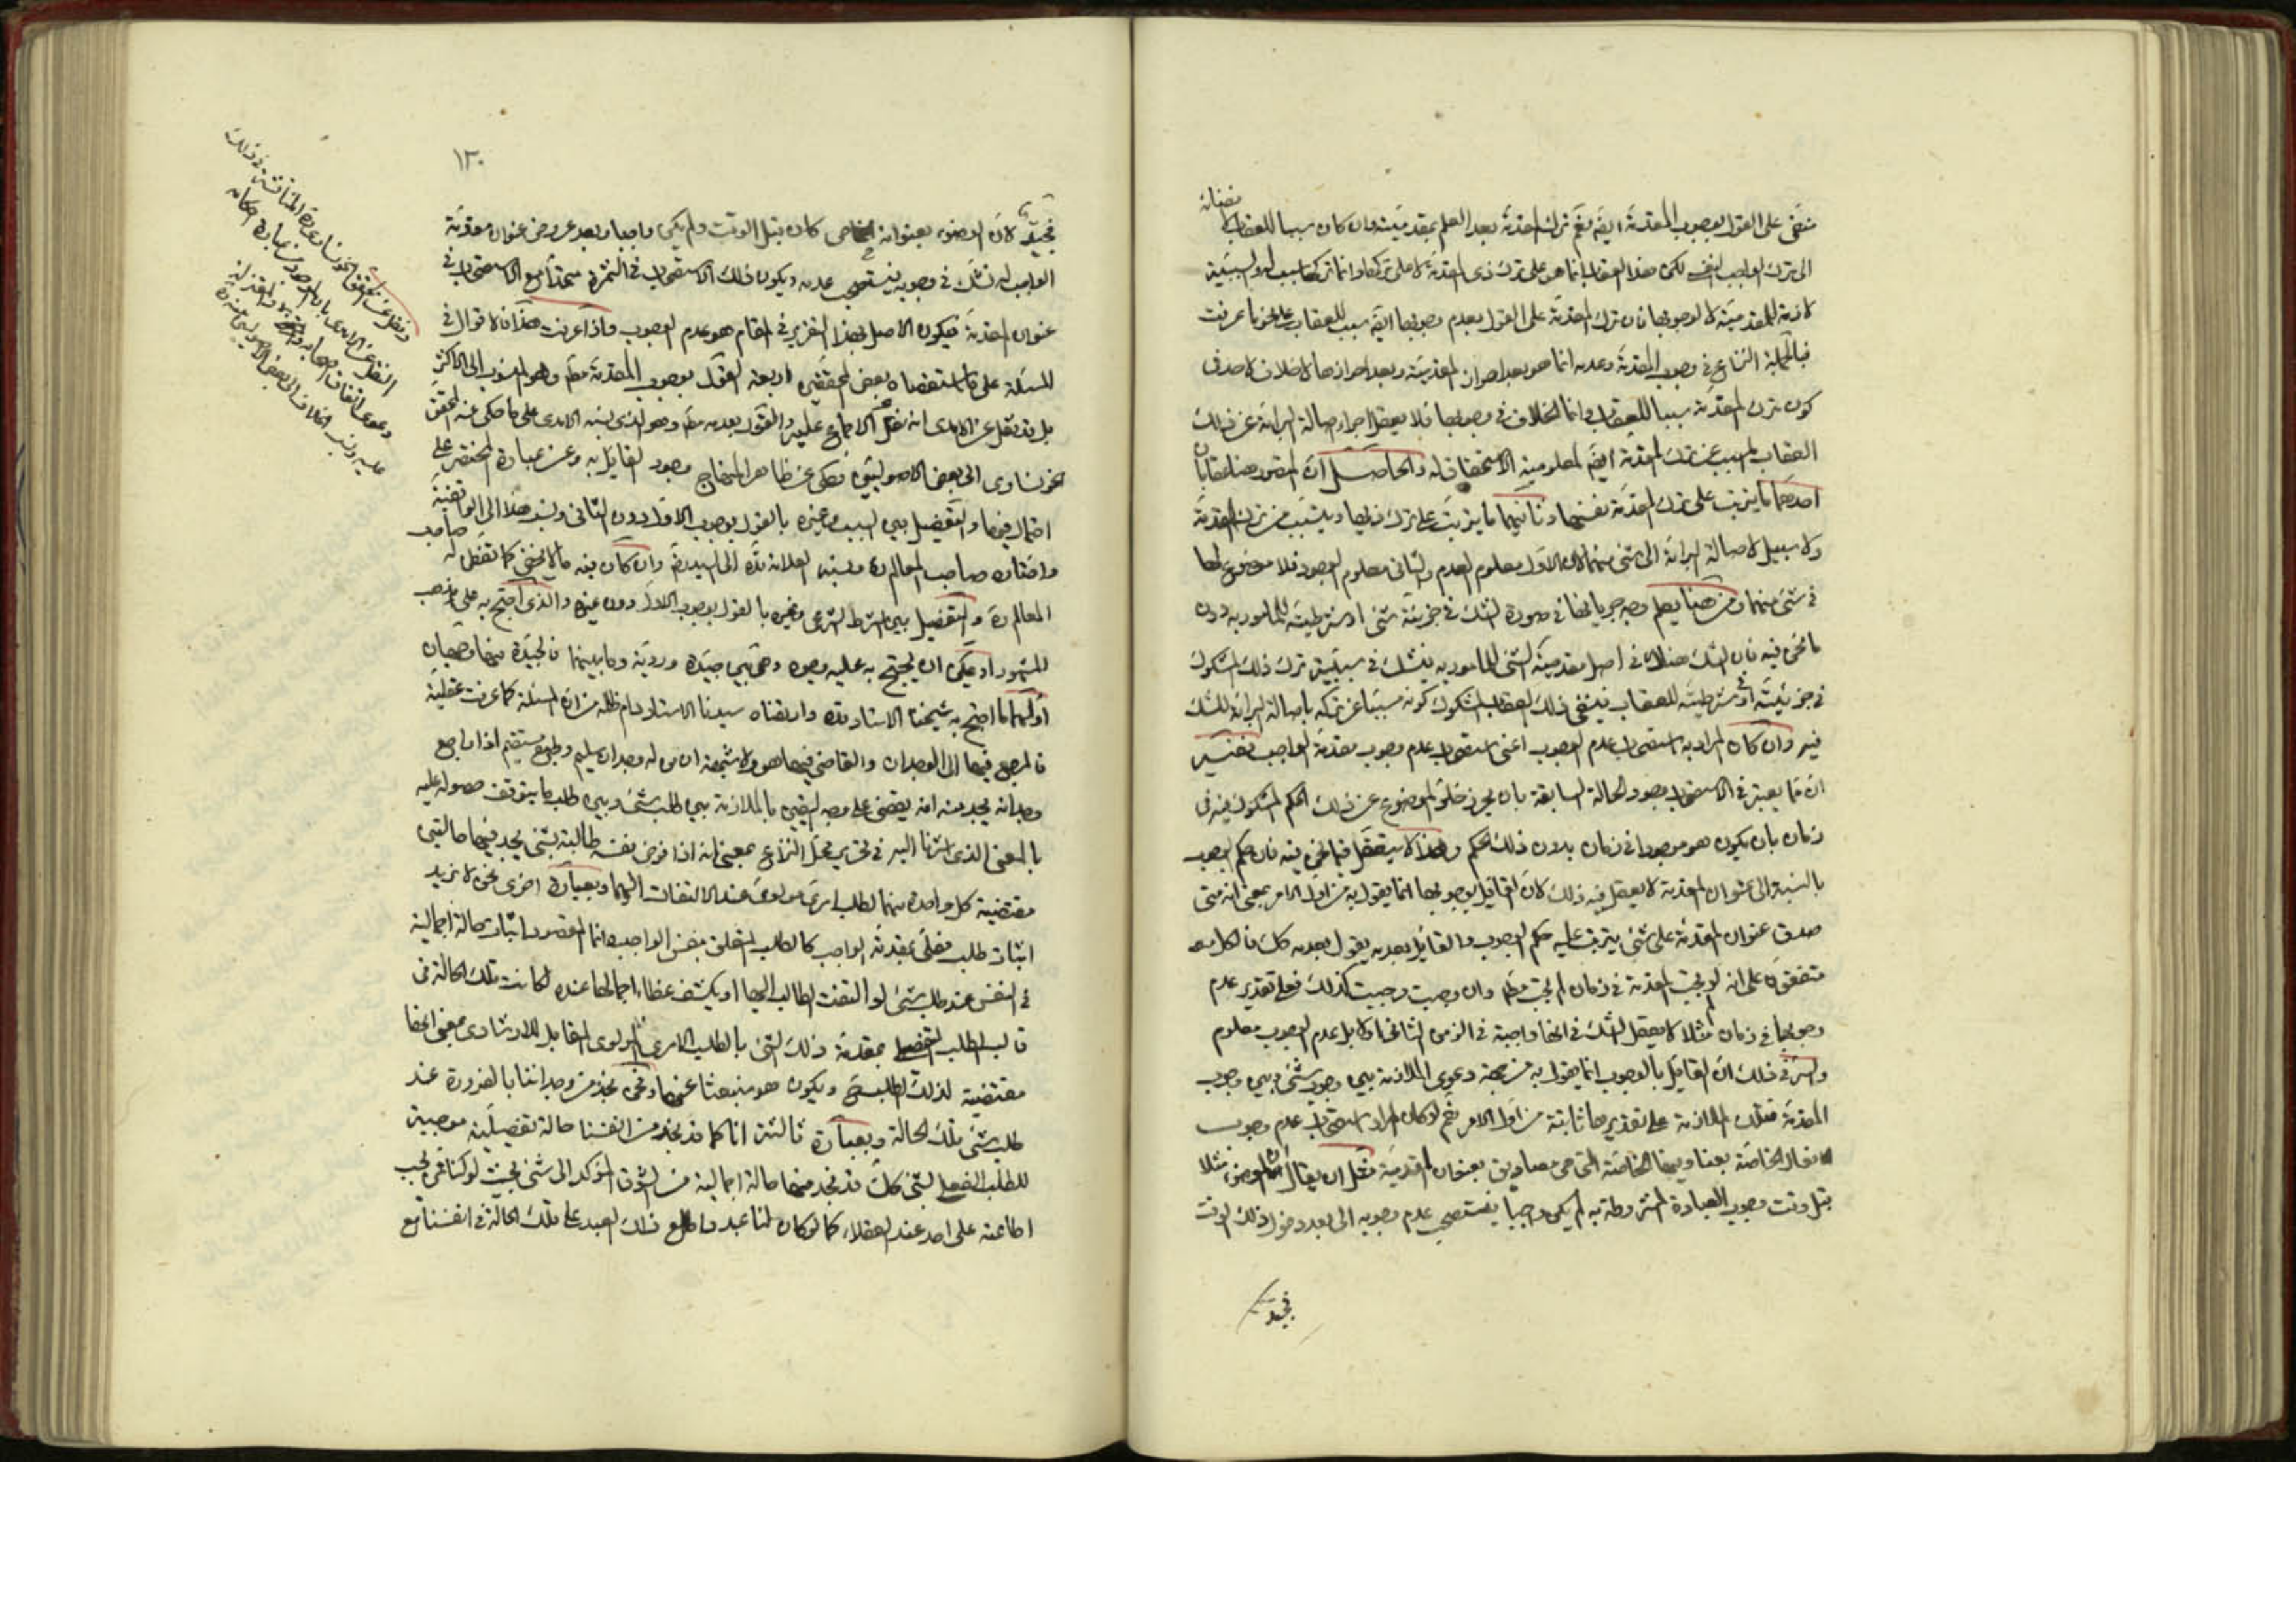 منفى على القول بوجوب المقدمة ايضا نعم ترك المقدمة بعد العلم بمقدميته وان كان سببا للعقاب
الى ترك الواجب النفسى لكن هذا العقاب انما هو على ترك ذى المقدمة لا على تركها وانما تركها سبب له والسببية
لازمة للمقدمية لا لوجوبها فان ترك المقدمة على القول بعدم وجوبها ايضا سبب للعقاب على نحو ما عرفت
فبالجملة النزاع فى وجوب المقدمة وعدمه انما هو بعد احراز المقدمية وبعد احرازها لا خلاف لاحد فى
كون ترك المقدمة سببا للعقاب وانما الخلاف فى وجوبها فلا يعقل اجراء اصالة البراءة عن ذلك
العقاب المسبب عن ترك المقدمة ايضا لمعلومية الاستحقاق له والحاصل ان المتصور هنا عقابان
احدهما ما يترتب على ترك المقدمة نفسها وثانيهما ما يترتب على ترك ذيها ويتسبب من ترك المقدمة
ولا سبيل لاصالة البراءة الى شئ منهما لان الاول معلوم العدم والثانى معلوم الوجود فلا موضوع لها
فى شئ منهما ومن هنا يعلم وجه جريانها فى صورة الشك فى جزئية شئ او شرطيته للمامور به دون
ما نحن فيه فان الشك هناك فى اصل مقدمية الشئ للمامور به فيشك فى سببية ترك ذلك المشكوك
فى جزئيته او شرطيته للعقاب فينفى ذلك العقاب المشكوك كونه مسببا عن تركه باصالة البراءة للشك
فيه وان كان المراد به استصحاب عدم الوجوب اعنى استصحاب عدم وجوب مقدمة الواجب ففيه
ان مما يعتبر فى الاستصحاب وجود الحالة السابقة بان يحرز خلو الموضوع عن ذلك الحكم المشكوك فيه فى
زمان بان يكون هو موجودا فى زمان بدون ذلك الحكم وهذا لا يتعقل فيما نحن فيه فان حكم الوجوب
بالنسبة الى عنوان المقدمة لا يعقل فيه ذلك لان القائل بوجوبها انما يقول به من اول الامر بمعنى انه متى
صدق عنوان المقدمة على شئ يترتب عليه حكم الوجوب والقائل بعدمه يقول بعدمه كك فالكل
متفقون على انه لو لم يجب المقدمة فى زمان لم يجب مطلقا وان وجبت وجبت كذلك فعلى تقدير عدم
وجوبها فى زمان مثلا لا يعقل الشك فى انها واجبة فى الزمن الثانى اولا بل عدم الوجوب معلوم
والسر فى ذلك ان القائل بالوجوب انما يقول به من جهة دعوى الملازمة بين وجوب شئ وبين وجوب
المقدمة فتلك الملازمة على تقديرها ثابتة من اول الامر نعم لو كان المراد استصحاب عدم وجوب
الافعال الخاصة بعناوينها الخاصة التى هى مصاديق بعنوان المقدمية مثل ان يقال ان الوضوء مثلا
قبل وقت وجوب العبادة المشروطة به لم يكن واجبا فيستصحب عدم وجوبه الى بعد دخول ذلك الوقت
فجيد
١٣٠
فجيد لان الوضوء بعنوانه الخاص كان قبل الوقت ولم يكن واجبا وبعد عروض عنوان مقدمة
الواجب له نشك فى وجوبه فيستصحب عدمه ويكون ذلك الاستصحاب فى الثمرة متحدا مع الاستصحاب فى
عنوان المقدمة فيكون الاصل بهذا التقرير فى المقام هو عدم الوجوب واذا عرفت هذا فالاقوال فى
المسئلة على ما استقصاه بعض المحققين اربعة القول بوجوب المقدمة مطلقا وهو المنسوب الى الاكثر
بل قد نقل عن الآمدى انه نقل الاجماع عليه والقول بعدمه مطلقا وهو الذى نسبه الآمدى على ما حكى عنه المحقق
الخونسارى الى بعض الاصوليين وحكى عن ظاهر المنهاج وجود القائل به وعن عبارة المختصر على
احتمال فيها والتفصيل بين السبب وغيره بالقول بوجوب الاول دون الثانى ونسب هذا الى الواقفية
واختاره صاحب المعالم ره ونسبه العلامة قده الى السيد ره وان كان فيه ما لا يخفى كما تفطن له صاحب
المعالم ره والتفصيل بين الشرط الشرعى وغيره بالقول بوجوب الاول دون غيره والذى احتج به على مذهب
المشهور او يمكن ان يحتج به عليه وجوه وهى بين جيدة وردية وما بينهما فالجيدة منها وجهان
اولهما ما احتج به شيخنا الاستاد قده وارتضاه سيدنا الاستاد دام ظله من ان المسئلة كما عرفت عقلية
فالمرجع فيها الى الوجدان والقاضى فيها هو ولا شبهة ان من له وجدان سليم وطبع مستقيم اذا راجع
وجدانه يجد منه انه يقضى على وجه اليقين بالملازمة بين طلب شئ وبين طلب ما يتوقف حصوله عليه
بالمعنى الذى اشرنا اليه فى تحرير محل النزاع بمعنى انه اذا فرض نفسه طالبة لشئ يجد فيها حالتين
مقتضية كل واحدة منهما لطلب امرى مولوى عند الالتفات اليهما وبعبارة اخرى نحن لا نريد
اثبات طلب فعلى بمقدمة الواجب كالطلب المتعلق بنفس الواجب وانما المقصود اثبات حالة اجمالية
فى النفس عند طلب شئ لو التفت الطالب اليها او يكشف غطاء اجمالها عنده لكانت تلك الحالة فى
قالب الطلب الفعلى بمقدمة ذلك الشئ بالطلب الامرى المولوى المقابل للارشادى بمعنى انها
مقتضية لذلك الطلب ويكون هو منبعثا عنها ونحن نجد من وجداننا بالضرورة عند
طلب شئ تلك الحالة وبعبارة ثالثة انا كما قد نجد من انفسنا حالة تفصيلية موجبة
للطلب الفعلى لشئ كك قد نجد منها حالة اجمالية من الشوق المؤكد الى شئ بحيث لو كنا ممن يجب
اطاعته على احد عند العقلاء كما لو كان لنا عبد واطلع ذلك العبد على تلك الحالة فى انفسنا مع